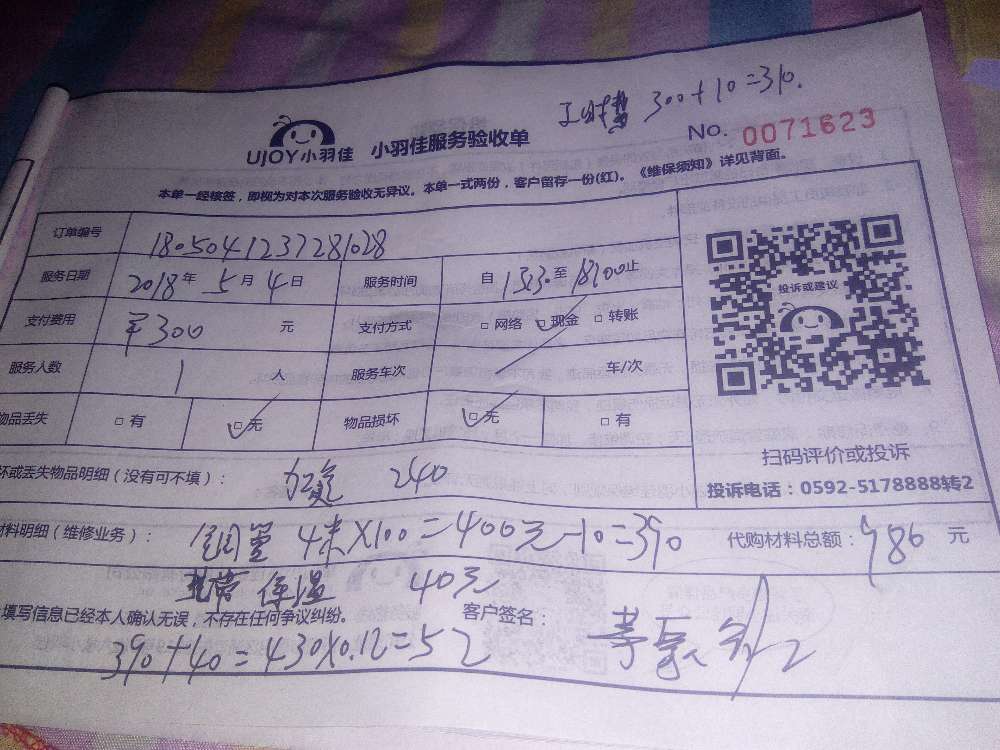 工时费 300+10=310.
UJOY小羽佳 小羽佳服务验收单 No. 0071623
本单一经核签，即视为对本次服务验收无异议。本单一式两份，客户留存一份(红)。《维保须知》详见背面。
订单编号 1805041237281028
服务日期 2018年 5月 4日 服务时间 自 1530至 1800止
支付费用 ￥300 元 支付方式 □网络 □现金 □转账
服务人数 1 人 服务车次 车/次
物品丢失 □有 □无 物品损坏 □无 □有
坏或丢失物品明细（没有可不填）： 240
材料明细（维修业务）： 铜管 4米×100=400元-10=390 代购材料总额： 986 元
保温 40元
填写信息已经本人确认无误，不存在任何争议纠纷。 客户签名：
390+40=430×0.12=52
投诉或建议
扫码评价或投诉
投诉电话：0592-5178888转2